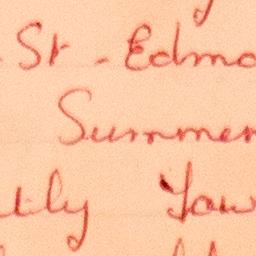 St. Edmo
Summer
tily Tow